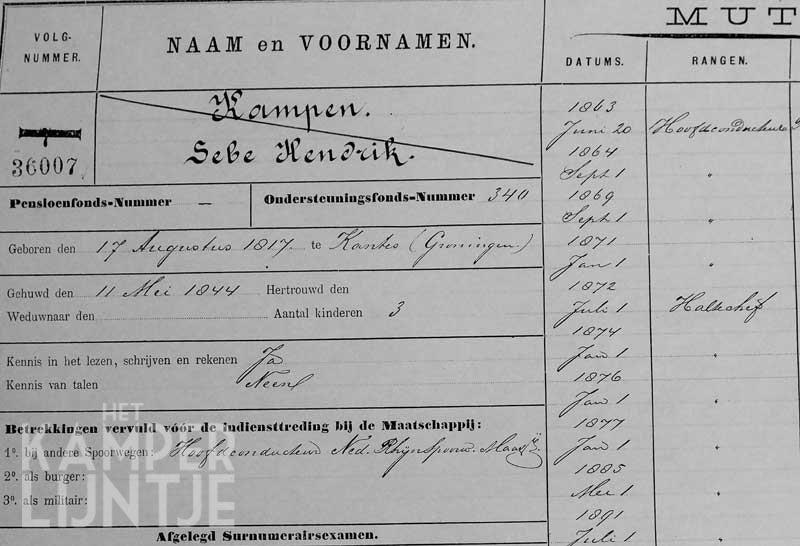 VOLG-
NUMMER.
NAAM en VOORNAMEN.
MUT
DATUMS.
RANGEN.
Kampen.
Sebe Hendrik.
36007
Pensioenfonds-Nummer —
Ondersteuningsfonds-Nummer 340
Geboren den 17 Augustus 1817. te Kantes (Groningen)
Gehuwd den 11 Mei 1844 Hertrouwd den
Weduwnaar den Aantal kinderen 3
Kennis in het lezen, schrijven en rekenen Ja
Kennis van talen Neen
Betrekkingen vervuld vóór de indiensttreding bij de Maatschappij:
1o. bij andere Spoorwegen: Hoofdconducteur Ned. Rhijnspoorw. Maatsch.
2o. als burger:
3o. als militair:
Afgelegd Surnumerairsexamen.
1863
Juni 20 Hoofdconducteur
1864
Sept 1 "
1869
Sept 1 "
1871
Jan 1 "
1872
Juli 1 Haltechef
1874
Jan 1 "
1876
Jan 1 "
1877
Jan 1 "
1885
Mei 1 "
1891
Juli 1 "
HET
KAMPER
LIJNTJE